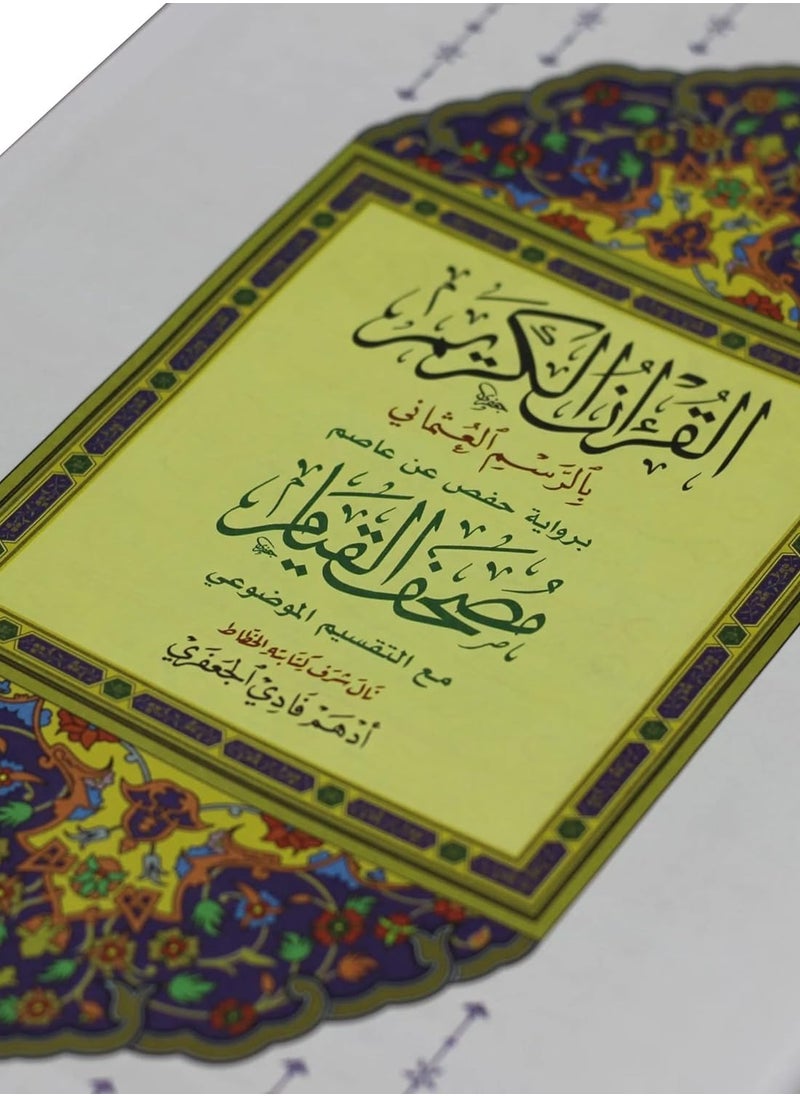 القرءان الكريم
بِٱلرَّسْمِ ٱلْعُثْمَانِي
برواية حفص عن عاصم
مصحف القيام
مع التقسيم الموضوعي
نال شرف كتابته الخطاط
أدهم فادي الجعفري